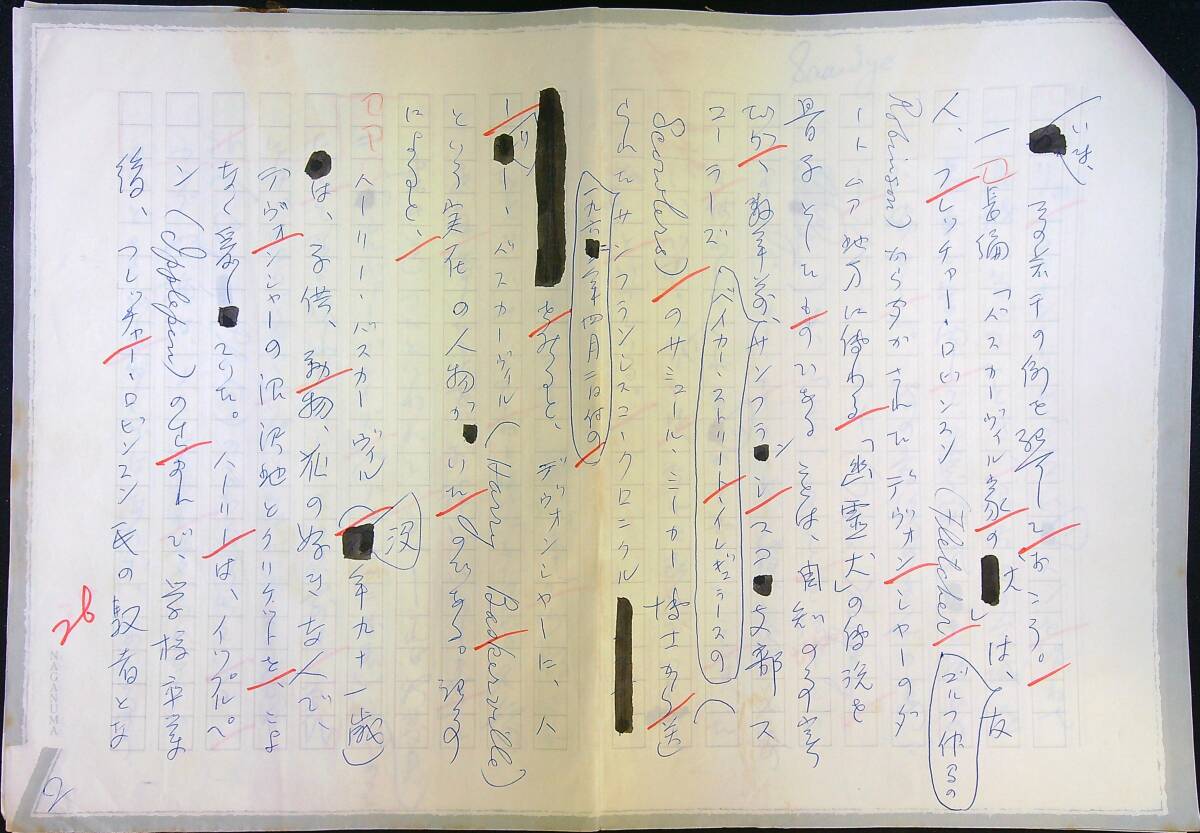 いま、
若干の例を挙げておこう。
一 長編「バスカーヴィル家の犬」は、友
人、フレッチャー・ロビンスン(Fletcher
ゴルフ仲間の
Robinson)からきかされたデヴォンシャーのダ
ートムア地方に伝わる「幽霊犬」の伝説を
骨子としたものであることは、周知の事実
だが、数年前、サンフランシスコ支部ス
ベイカー・ストリート・イレギュラーズの
コーラーズ(
Scowlers)のサミュール・ミーカー博士から送
られたサンフランシスコ・クロニクル
一九六二年四月二日付の
をみると、デヴォンシャーに、ハ
ーリー・バスカーヴィル(Harry Baskerville)
という実在の人物がいたのである。記事
によると、
ハーリー・バスカーヴィル(没年九十一歳)
は、子供、動物、花の好きな人で、
デヴォンシャーの沼沢地とクリケットを、こよ
なく愛していた。ハーリーは、イップルペ
ン(Ipplepen)の生れで、学校卒業
後、フレッチャー・ロビンスン氏の馭者とな
26